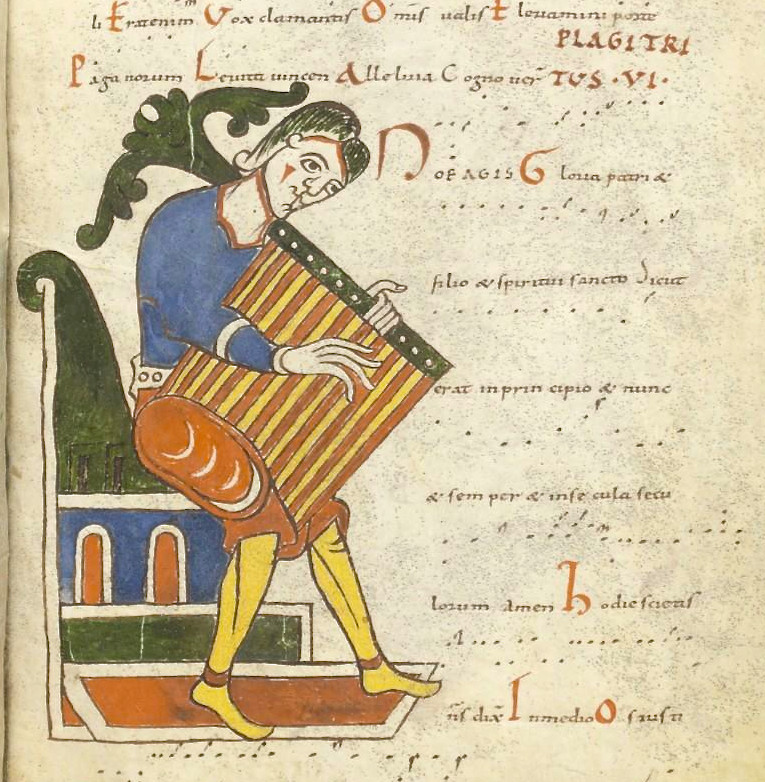 li Fratenim Vox clamantis Omis ualis Eleuamini porte
PLAGI TRI
Paganorum Leuita uincen Alleluia Cogno uer TUS · VI ·
NOEAGIS Gloria patri &
filio & spiritui sancto Sicut
erat in prin cipio & nunc
& sem per & inse cula secu
lorum amen hodie scietis
dix In medio O s iusti